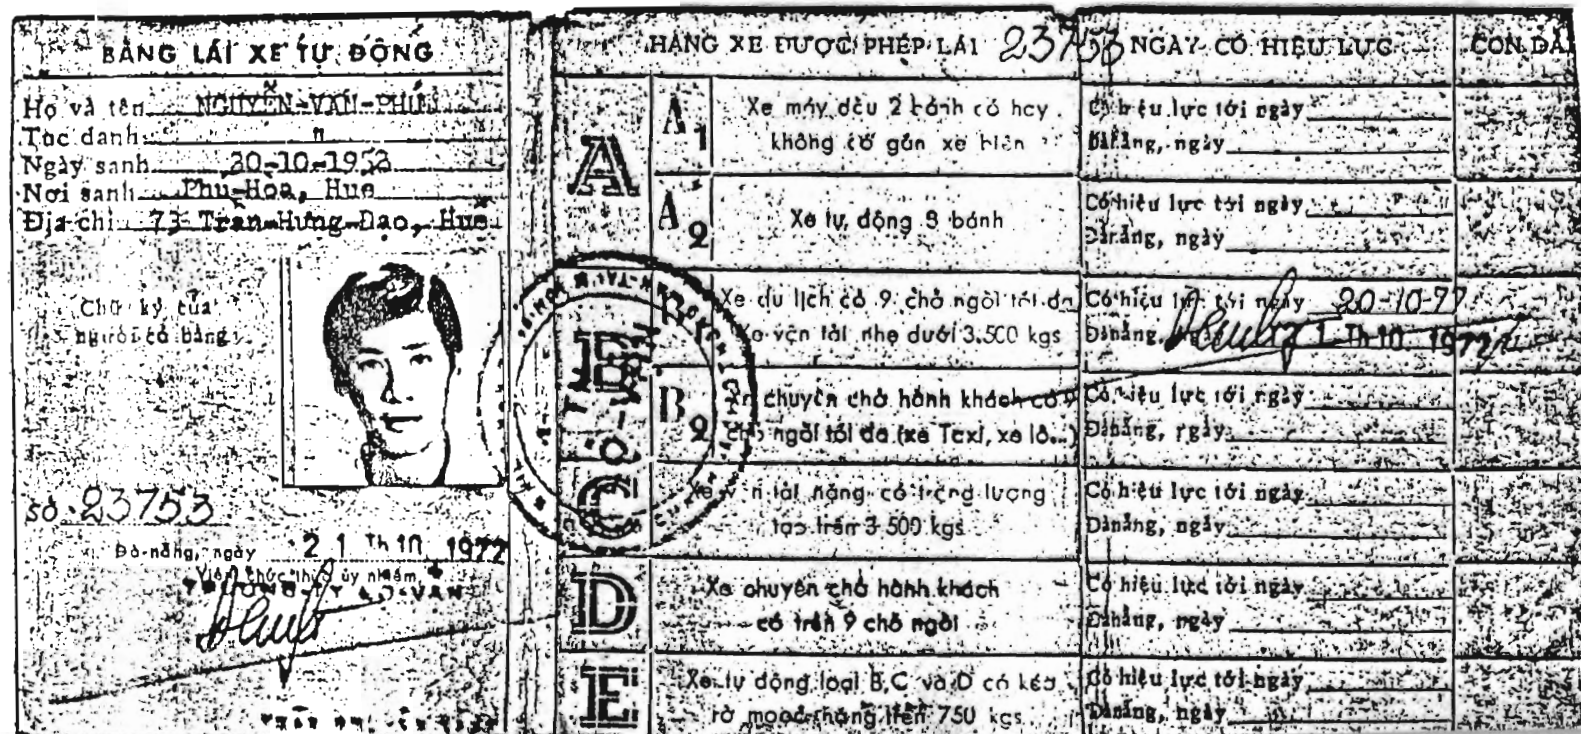 BẰNG LÁI XE TỰ ĐỘNG
Họ và tên NGUYỄN-VĂN-PHÚ
Tục danh "
Ngày sanh 30-10-1953
Nơi sanh Phú-Hòa, Huế
Địa chỉ 73 Trần-Hưng-Đạo, Huế
Chữ ký của
người có bằng
Số 23753
Đà-nẵng, ngày 21 Th 10 1972
ủy nhiệm,
HẠNG XE ĐƯỢC PHÉP LÁI 23753
NGÀY CÓ HIỆU LỰC
CON DẤU
A
A1
Xe máy dầu 2 bánh có hay
không có gắn xe bên
Có hiệu lực tới ngày
Đànẵng, ngày
A2
Xe tự động 3 bánh
Có hiệu lực tới ngày
Đànẵng, ngày
B
Xe du lịch có 9 chỗ ngồi tối đa
Xe vận tải nhẹ dưới 3.500 kgs
Có hiệu lực tới ngày 20-10-77
Đànẵng, 21 Th 10 1972
B2
Xe chuyên chở hành khách có 9
chỗ ngồi tối đa (xe Taxi, xe lô...)
Có hiệu lực tới ngày
Đànẵng, ngày
C
Xe vận tải nặng có trọng lượng
trên 3 500 kgs
Có hiệu lực tới ngày
Đànẵng, ngày
D
Xe chuyên chở hành khách
có trên 9 chỗ ngồi
Có hiệu lực tới ngày
Đànẵng, ngày
E
Xe tự động loại B,C và D có kéo
rờ moọc nặng trên 750 kgs
Có hiệu lực tới ngày
Đànẵng, ngày